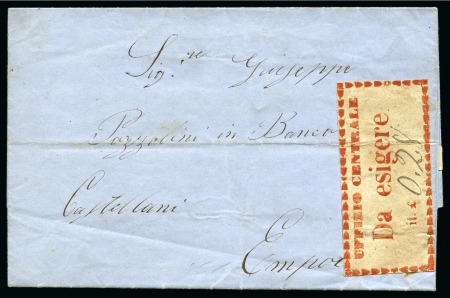 Sig.re Giuseppe
Pozzolini in Banco
Castellani
Empoli
UFFIZIO CENTRALE
Da esigere
it. £ 0,28